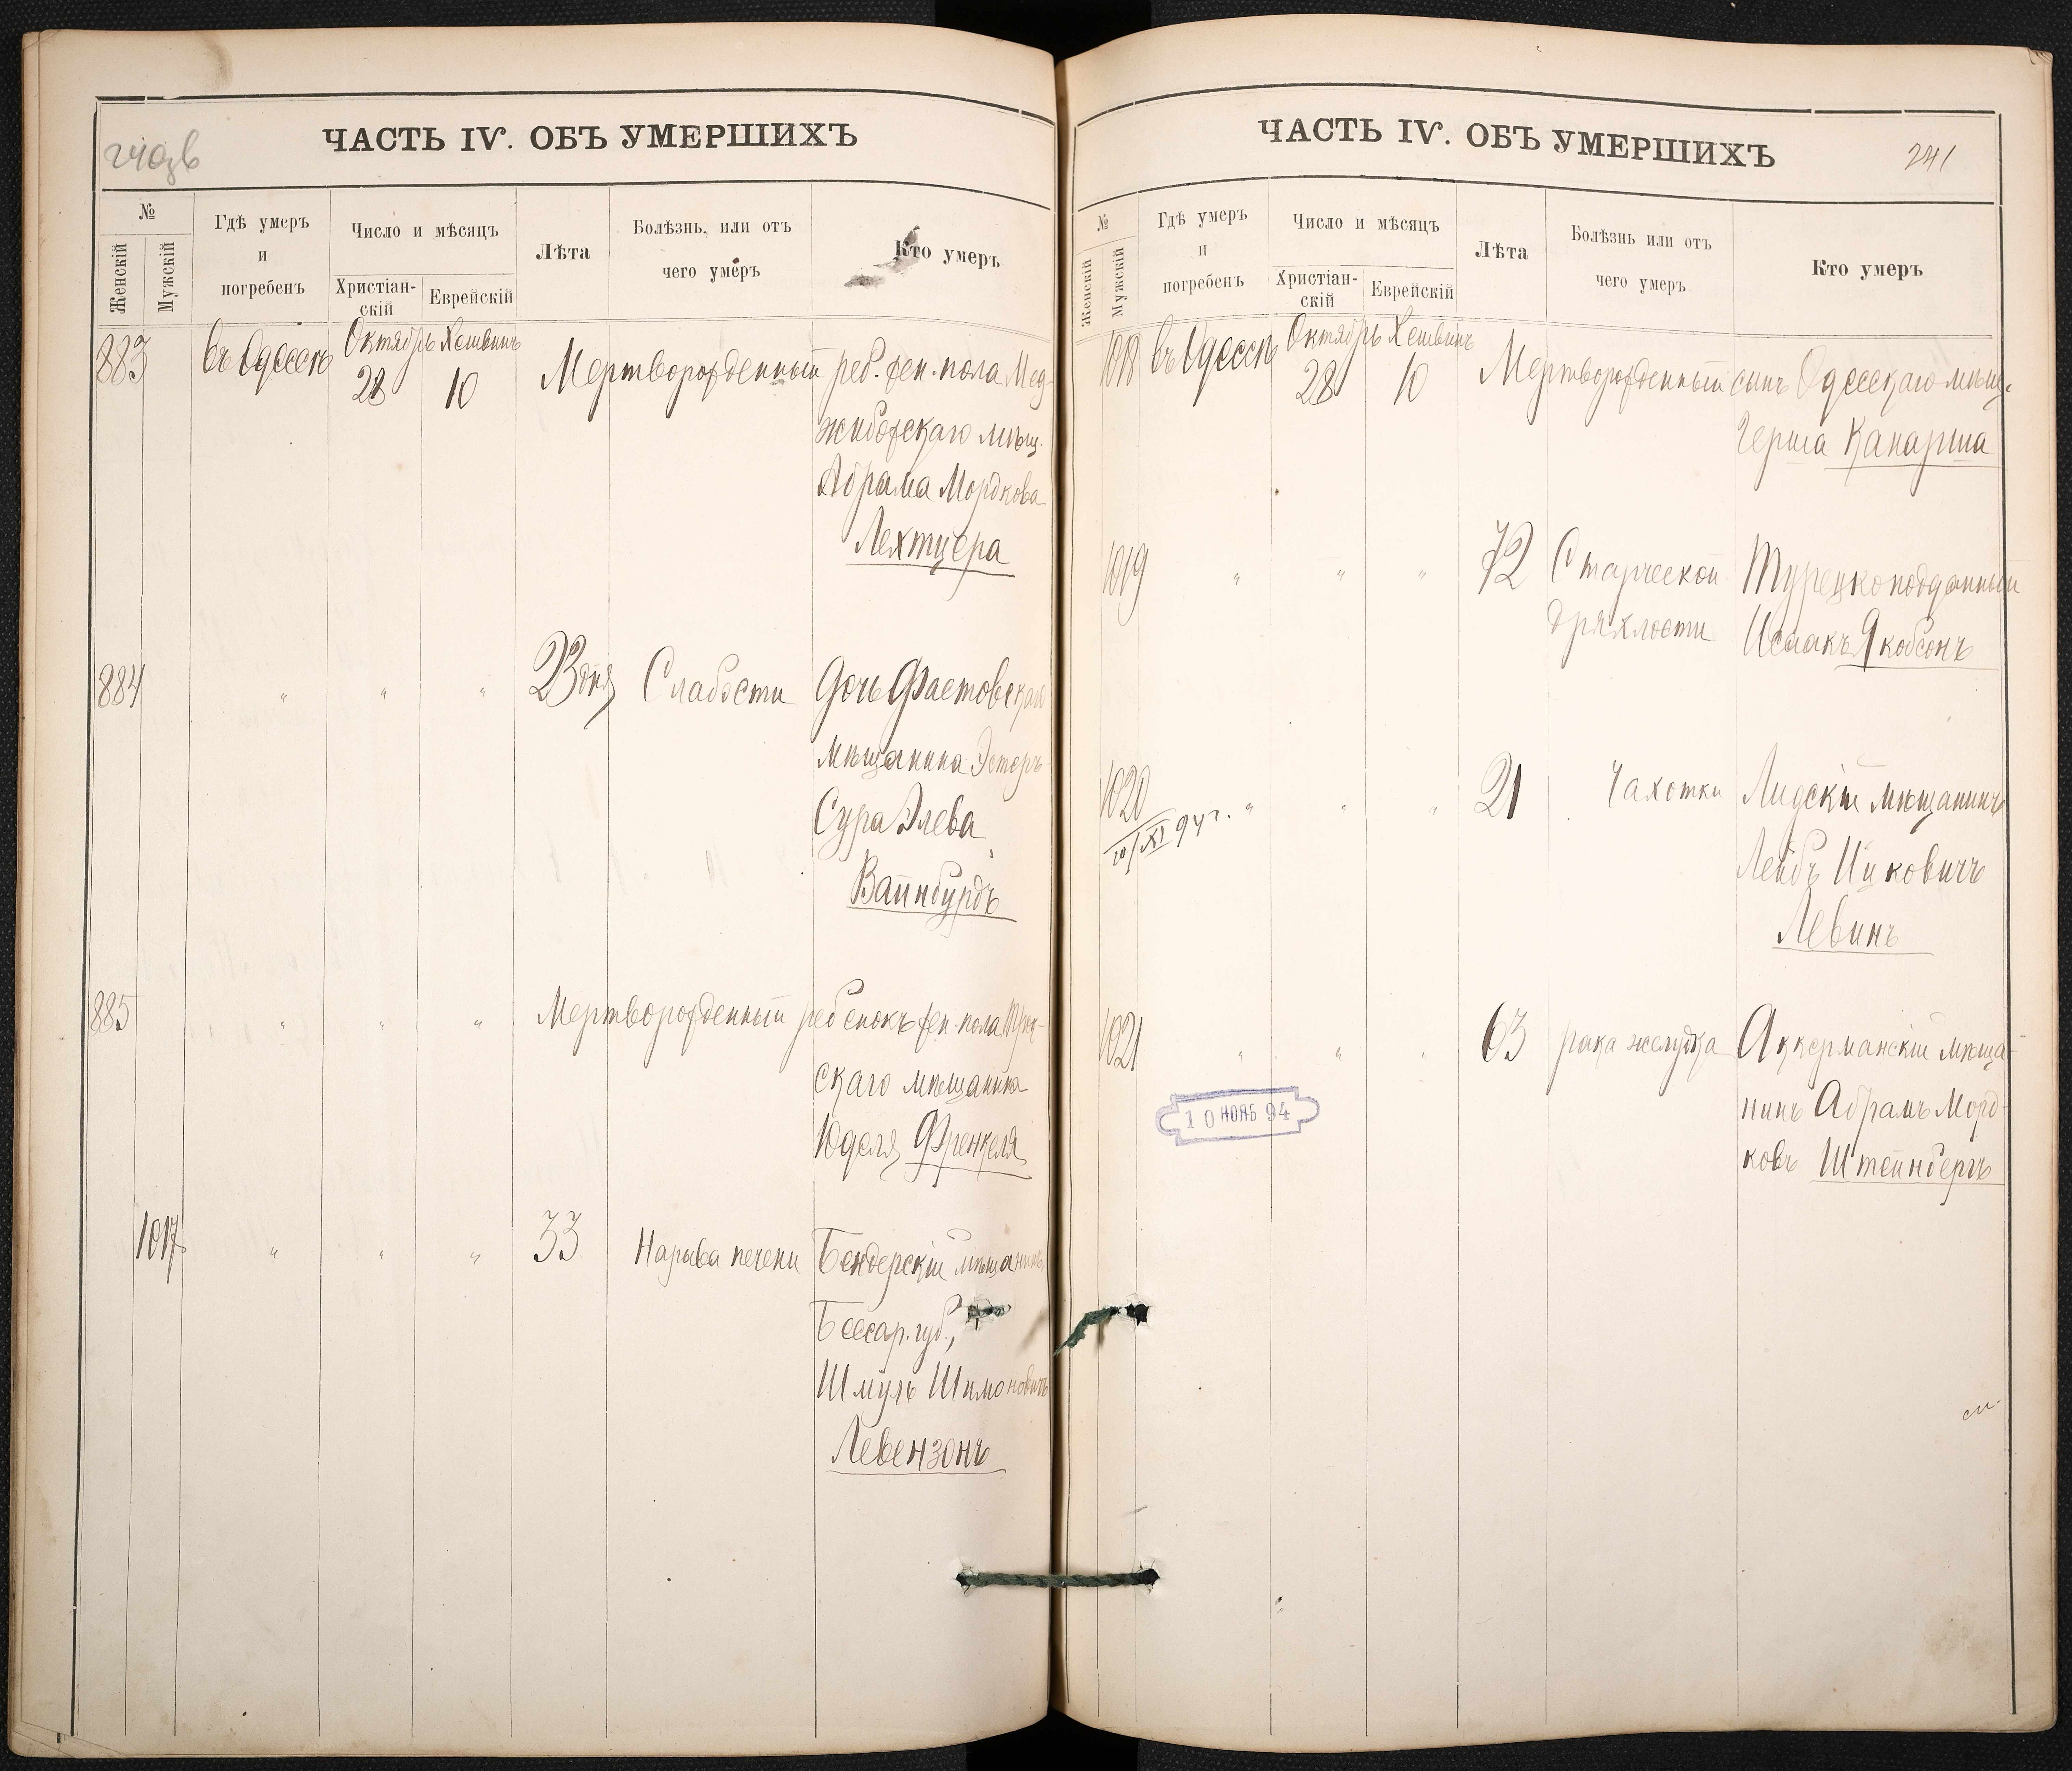 ЧАСТЬ IV. ОБЪ УМЕРШИХЪ
№
Женскій
Мужскій
Гдѣ умеръ
и
погребенъ
Число и мѣсяцъ
Христіан-
скій
Еврейскій
Лѣта
Болѣзнь, или отъ
чего умеръ
Кто умеръ
883 въ Одессѣ Октябрь Хешвинъ
28 10 Мертворожденный реб. жен. пола Мед-
жибожскаго мѣщ.
Абрама Мордкова
Лехтцера
884 " " " 23 дня Слабости Дочь Фастовскаго
мѣщанина Эстеръ-
Сура Элева
Вайнбурдъ
885 " " " Мертворожденный ребенокъ жен. пола
скаго мѣщанина
Юделя Френкеля
1017 " " " 33 Нарыва печени Бендерскій мѣщанинъ,
Бессар. губ.,
Шмуль Шимоновичъ
Левензонъ
ЧАСТЬ IV. ОБЪ УМЕРШИХЪ
241
№
Женскій
Мужскій
Гдѣ умеръ
и
погребенъ
Число и мѣсяцъ
Христіан-
скій
Еврейскій
Лѣта
Болѣзнь или отъ
чего умеръ
Кто умеръ
1018 въ Одессѣ Октябрь Хешвинъ
28 10 Мертворожденный сынъ Одесскаго мѣщ.
Герша Канарша
1019 " " " 72 Старческой Турецкоподданный
дряхлости Исаакъ Якобсонъ
1020 " " " 21 Чахотки Лидскій мѣщанинъ
10/XI 94 г.
Лейбъ Ицковичъ
Левинъ
1021 " " " 63 рака желудка Аккерманскій мѣща-
нинъ Абрамъ Морд-
ковъ Штейнбергъ
10 НОЯБ 94